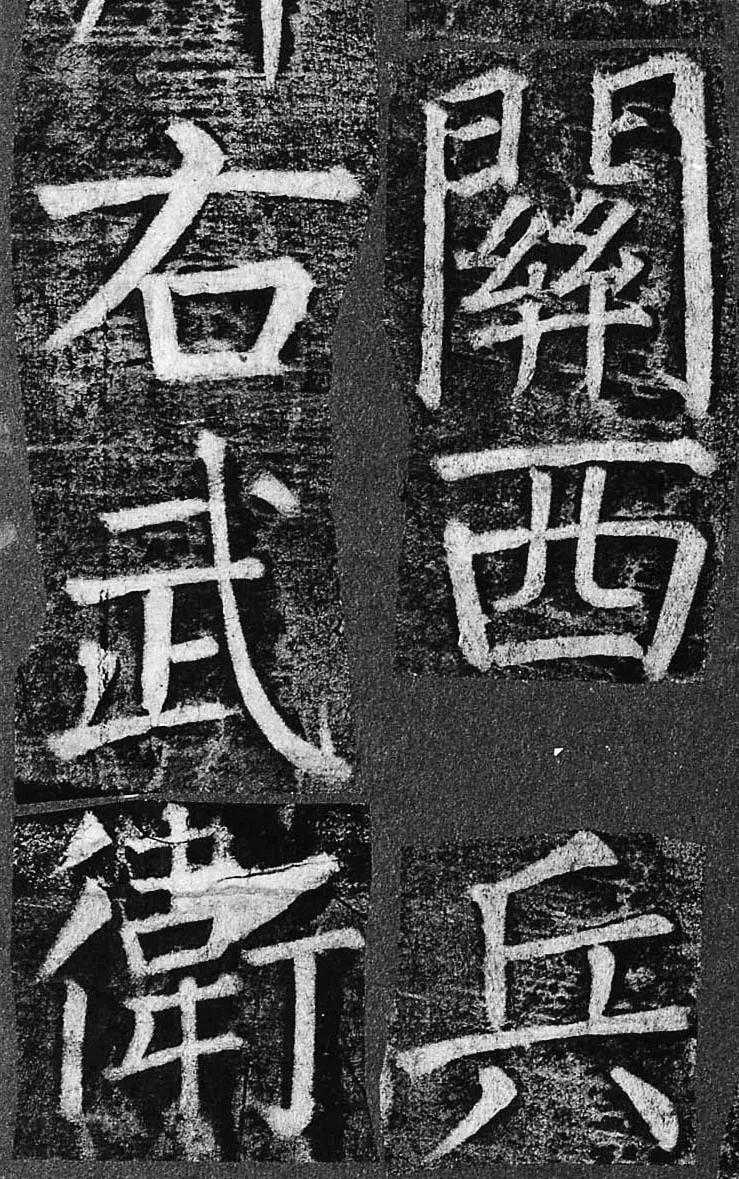 關西兵
右武衛